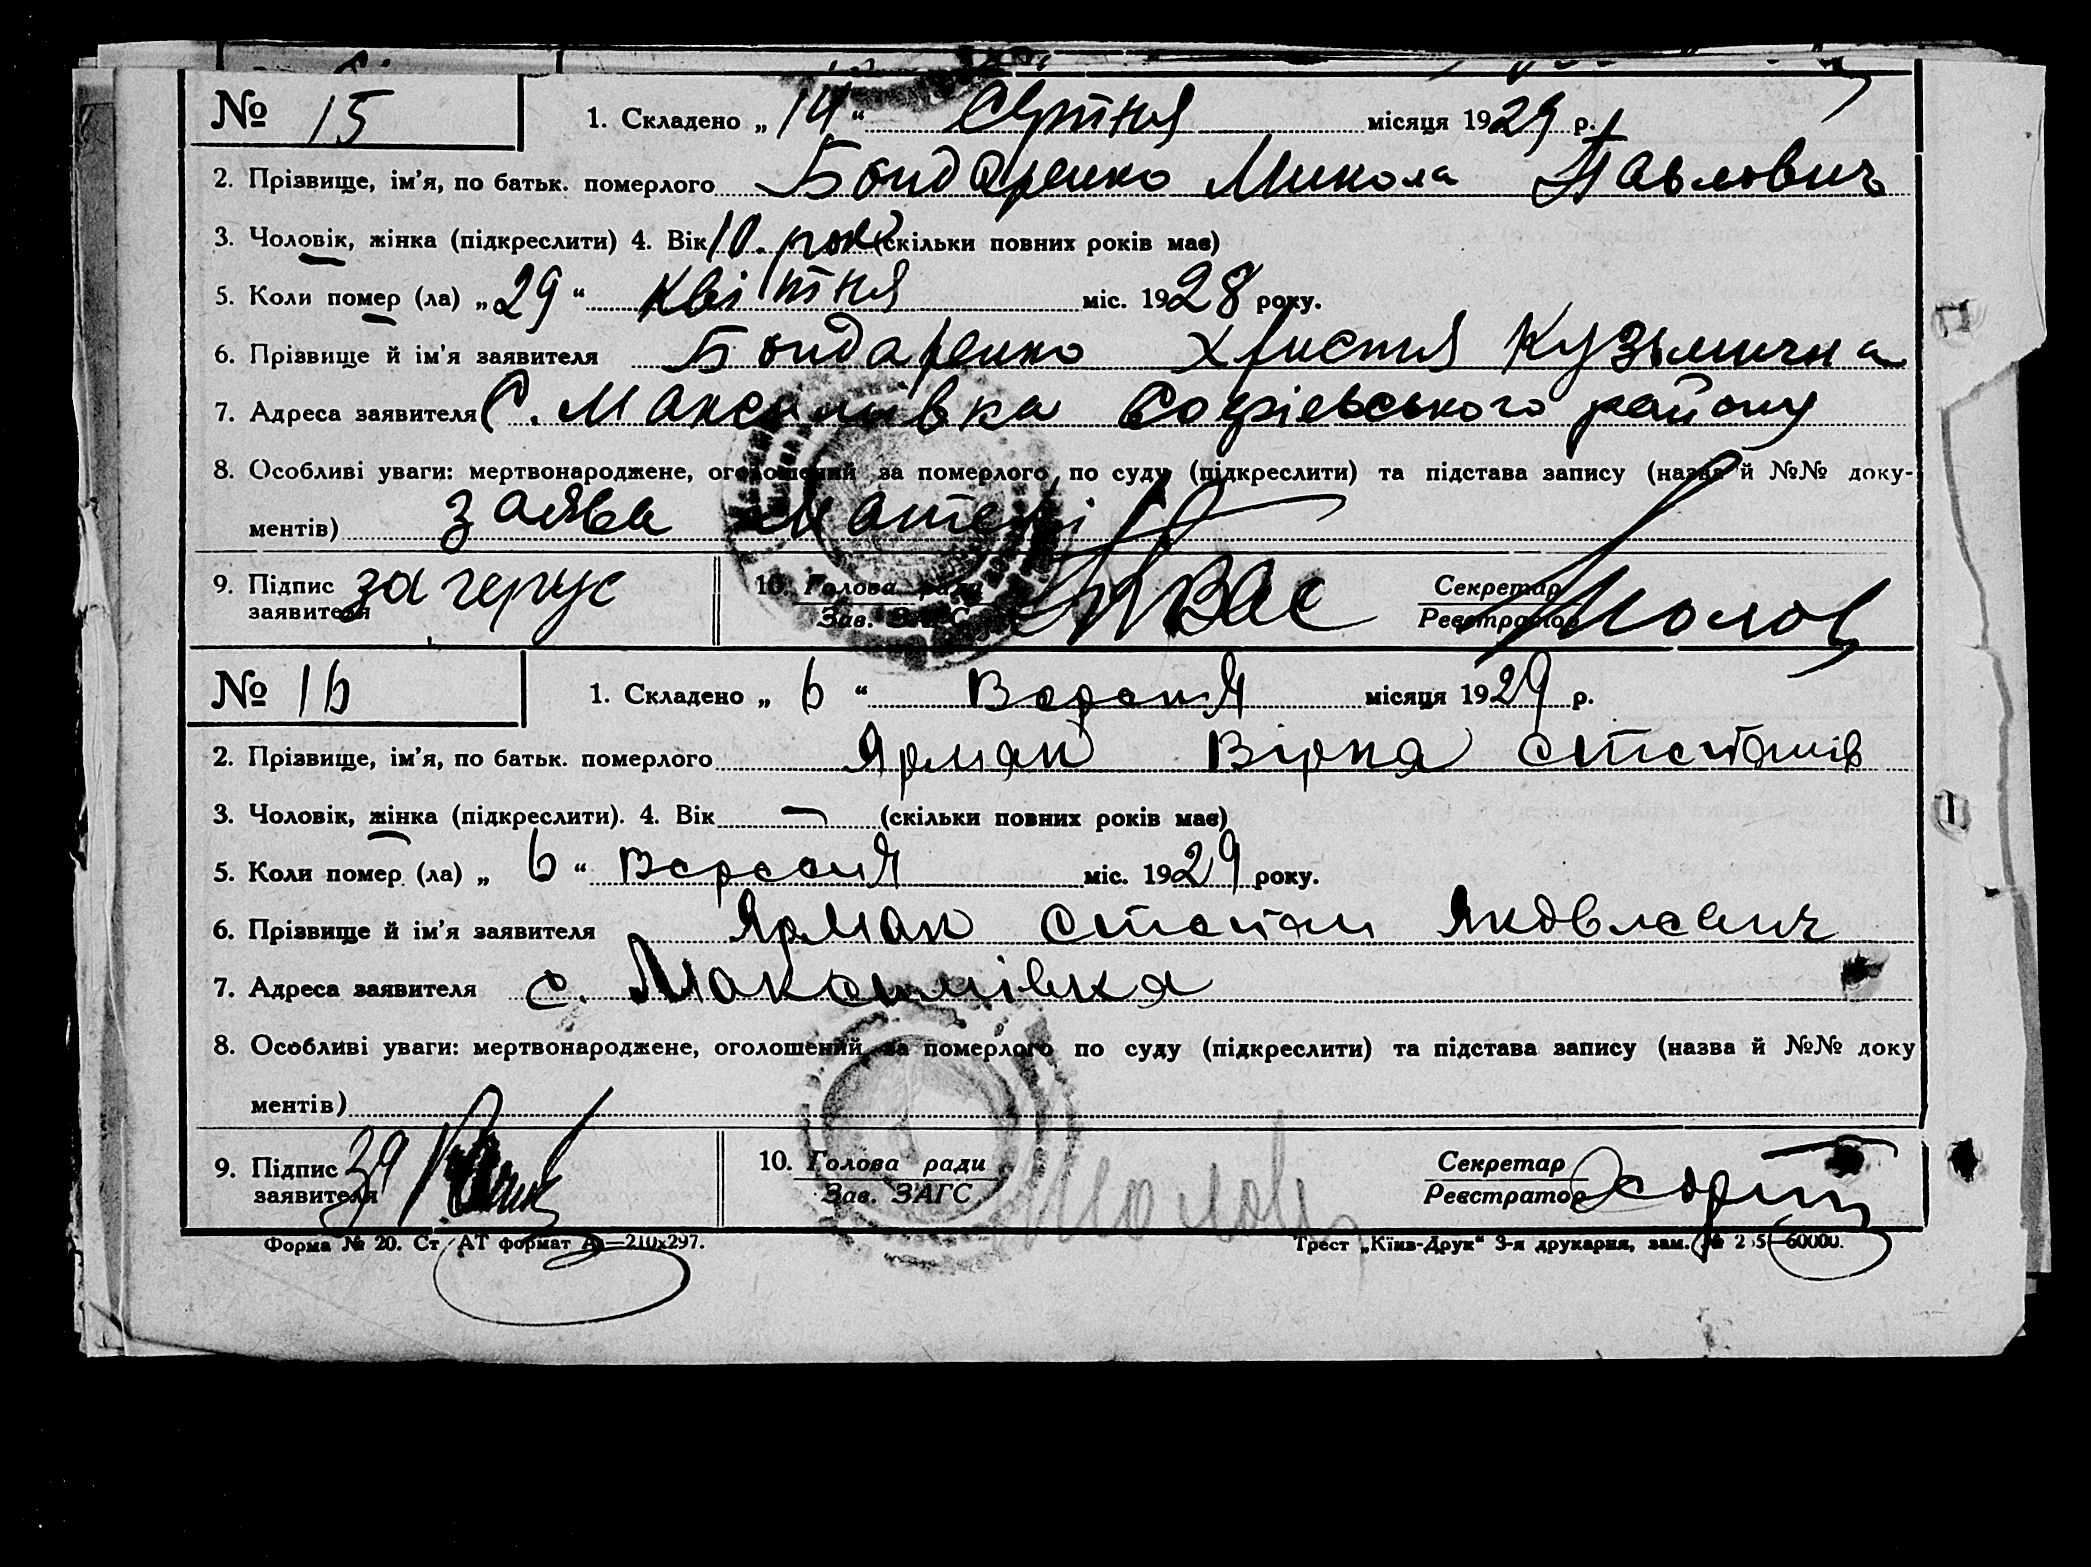 № 15 1. Складено „ 14 “ Серпня місяця 1929 р.
2. Прізвище, ім'я, по батьк. померлого Бондаренко Микола Павлович
3. Чоловік, жінка (підкреслити) 4. Вік 10. рок (скільки повних років має)
5. Коли помер (ла) „ 29 “ квітня міс. 1928 року.
6. Прізвище й ім'я заявителя Бондаренко Христя Кузьмична
7. Адреса заявителя С. Максимівка Софіевського району
8. Особливі уваги: мертвонароджене, оголошений за померлого по суду (підкреслити) та підстава запису (назва й №№ доку-
ментів) заява матері
9. Підпис за 10. Голова ради Секретар
заявителя Зав. ЗАГС Реєстратор
№ 16 1. Складено „ 6 “ Вересня місяця 1929 р.
2. Прізвище, ім'я, по батьк. померлого Ярмак Вірка
3. Чоловік, жінка (підкреслити). 4. Вік — (скільки повних років має)
5. Коли помер (ла) „ 6 “ Вересня міс. 1929 року.
6. Прізвище й ім'я заявителя Ярмак Степан Яковлевич
7. Адреса заявителя с. Максимівка
8. Особливі уваги: мертвонароджене, оголошений за померлого по суду (підкреслити) та підстава запису (назва й №№ доку
ментів)
9. Підпис за 10. Голова ради Секретар
заявителя Зав. ЗАГС Реєстратор
Форма № 20. Ст. АТ формат —210х297. Трест „Київ-Друк“ 3-я друкарня, зам. № 60000.